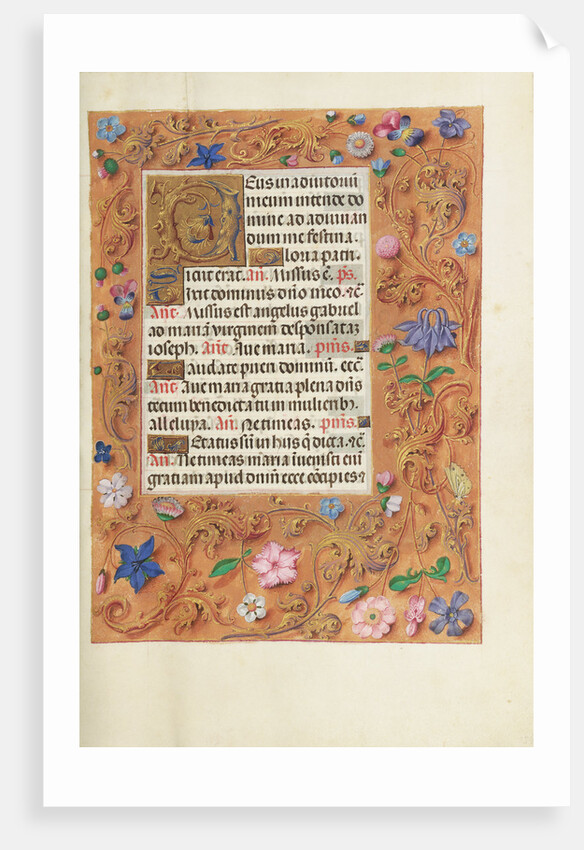 Deus in adiutoriū
meum intende do
mine ad adiuuan
dum me festina
Gloria patri.
Sicut erat. Añ. Missus ē. ps.
Dixit dominus dño meo. ⁊c̄.
Añt. Missus est angelus gabriel
ad mariā virginem desponsataz
ioseph. Añt. Aue maria. psm̄s.
Laudate pueri dominū. ecc̄.
Añt. Aue maria gratia plena dñs
tecum benedicta tu in mulierib9.
alleluya. Añ. Ne timeas. psm̄s.
Letatus sū in his q̄ dicta. ⁊c̄.
Añ. Ne timeas maria īuenisti enī
gratiam apud dominū ecce cōcipies ⁊